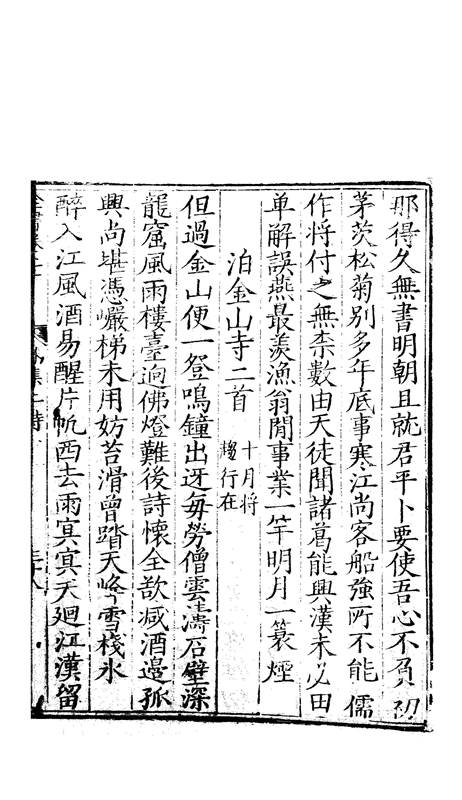 那得久無書明朝且就君平卜要使吾心不負初
茅茨松菊別多年底事寒江尚客船強所不能儒
作将付之無柰數由天徒聞諸葛能興漢未必田
单解誤燕最羨漁翁閒事業一竿明月一簑煙
泊金山寺二首
十月将
趨行在
但過金山便一登鳴鐘出迓每勞僧雲濤石壁深
龍窟風雨樓臺逈佛燈難後詩懷全欲减酒邊孤
興尚堪憑巖梯未用妨苔滑曾踏天峰雪棧氷
醉入江風酒易醒片帆西去雨冥冥天廻江漢留